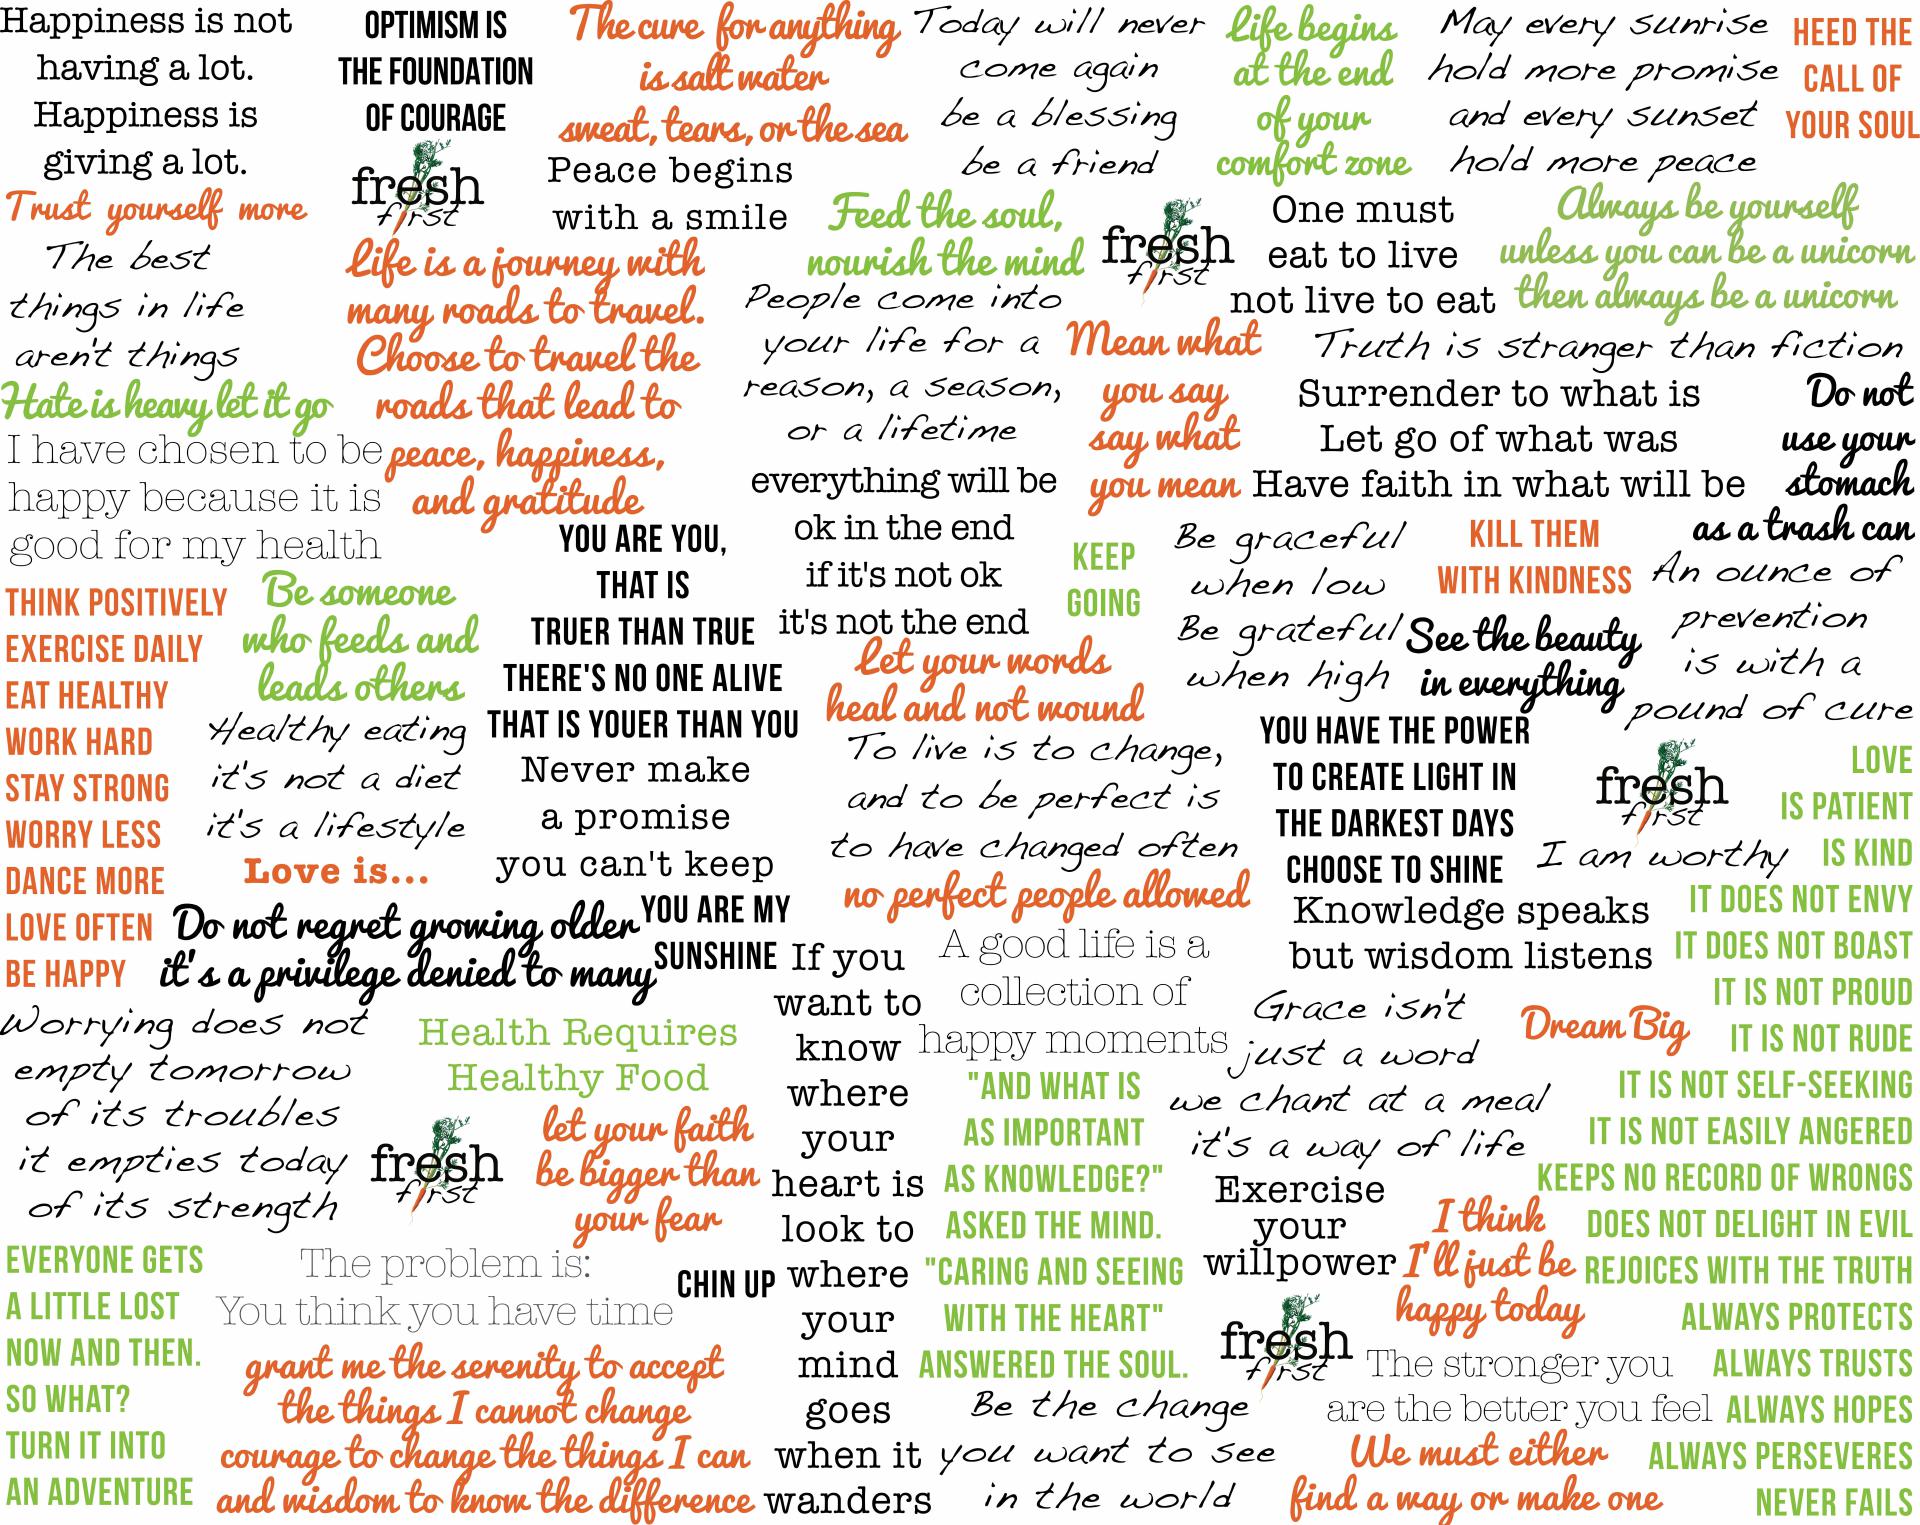 Happiness is not
having a lot.
Happiness is
giving a lot.
OPTIMISM IS
THE FOUNDATION
OF COURAGE
The cure for anything
is salt water
sweat, tears, or the sea
Today will never
come again
be a blessing
be a friend
Life begins
at the end
of your
comfort zone
May every sunrise
hold more promise
and every sunset
hold more peace
HEED THE
CALL OF
YOUR SOUL
fresh
first
Peace begins
with a smile
Trust yourself more
The best
things in life
aren't things
Life is a journey with
many roads to travel.
Choose to travel the
roads that lead to
peace, happiness,
and gratitude
Feed the soul,
nourish the mind
fresh
first
One must
eat to live
not live to eat
Always be yourself
unless you can be a unicorn
then always be a unicorn
People come into
your life for a
reason, a season,
or a lifetime
Mean what
you say
say what
you mean
Truth is stranger than fiction
Surrender to what is
Let go of what was
Have faith in what will be
Do not
use your
stomach
as a trash can
Hate is heavy let it go
I have chosen to be
happy because it is
good for my health
everything will be
ok in the end
if it's not ok
it's not the end
YOU ARE YOU,
THAT IS
TRUER THAN TRUE
THERE'S NO ONE ALIVE
THAT IS YOUER THAN YOU
KEEP
GOING
Be graceful
when low
Be grateful
when high
KILL THEM
WITH KINDNESS
An ounce of
prevention
is with a
pound of cure
THINK POSITIVELY
EXERCISE DAILY
EAT HEALTHY
WORK HARD
STAY STRONG
WORRY LESS
DANCE MORE
LOVE OFTEN
BE HAPPY
Be someone
who feeds and
leads others
See the beauty
in everything
Let your words
heal and not wound
Healthy eating
it's not a diet
it's a lifestyle
Never make
a promise
you can't keep
To live is to change,
and to be perfect is
to have changed often
YOU HAVE THE POWER
TO CREATE LIGHT IN
THE DARKEST DAYS
CHOOSE TO SHINE
fresh
first
I am worthy
LOVE
IS PATIENT
IS KIND
IT DOES NOT ENVY
IT DOES NOT BOAST
IT IS NOT PROUD
IT IS NOT RUDE
IT IS NOT SELF-SEEKING
IT IS NOT EASILY ANGERED
KEEPS NO RECORD OF WRONGS
DOES NOT DELIGHT IN EVIL
REJOICES WITH THE TRUTH
ALWAYS PROTECTS
ALWAYS TRUSTS
ALWAYS HOPES
ALWAYS PERSEVERES
NEVER FAILS
Love is...
no perfect people allowed
Do not regret growing older
it's a privilege denied to many
YOU ARE MY
SUNSHINE
Knowledge speaks
but wisdom listens
If you
want to
know
where
your
heart is
look to
where
your
mind
goes
when it
wanders
A good life is a
collection of
happy moments
Grace isn't
just a word
we chant at a meal
it's a way of life
Dream Big
Worrying does not
empty tomorrow
of its troubles
it empties today
of its strength
Health Requires
Healthy Food
fresh
first
let your faith
be bigger than
your fear
"AND WHAT IS
AS IMPORTANT
AS KNOWLEDGE?"
ASKED THE MIND.
"CARING AND SEEING
WITH THE HEART"
ANSWERED THE SOUL.
Exercise
your
willpower
I think
I'll just be
happy today
EVERYONE GETS
A LITTLE LOST
NOW AND THEN.
SO WHAT?
TURN IT INTO
AN ADVENTURE
The problem is:
You think you have time
CHIN UP
fresh
first
The stronger you
are the better you feel
grant me the serenity to accept
the things I cannot change
courage to change the things I can
and wisdom to know the difference
Be the change
you want to see
in the world
We must either
find a way or make one